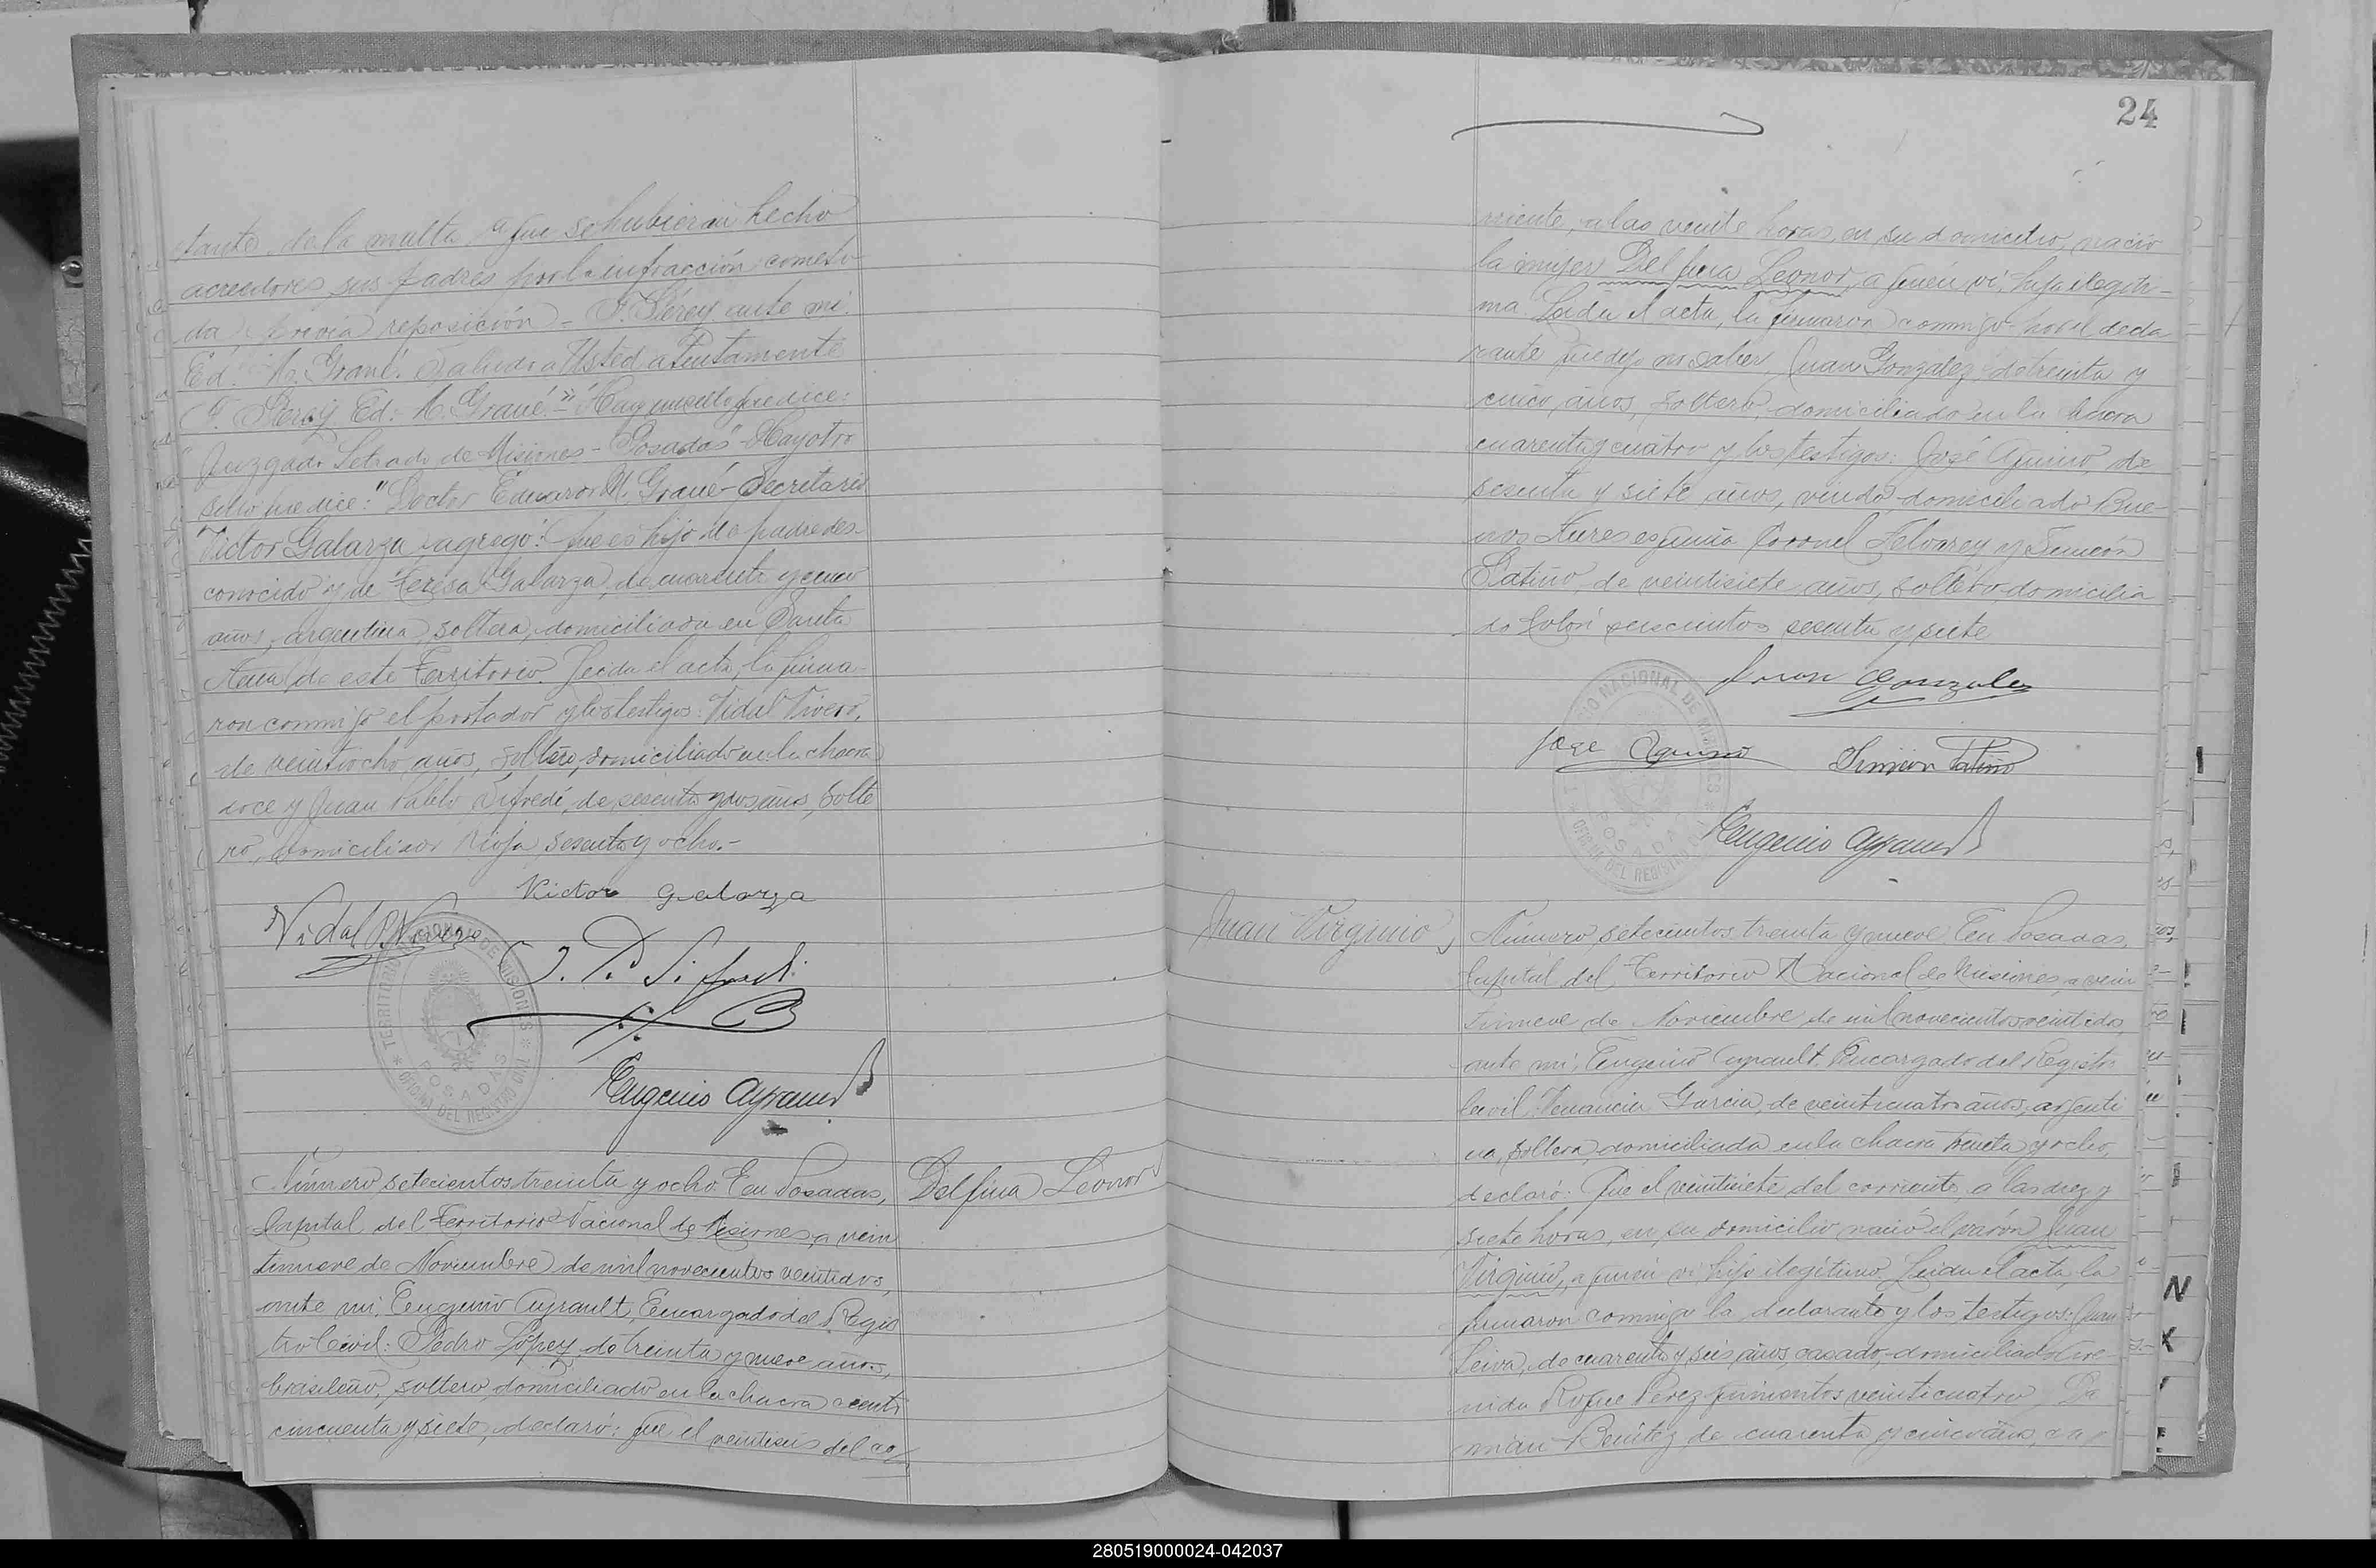 tante de la multa a que se hubieran hecho
acreedores sus padres por la infracción cometi-
da, previa reposición - F. Pérez ante mi:
Ed. M. Grané. Saludo a Usted atentamente
F. Perez Ed: M. Grané" Hay un sello que dice:
"Juzgado Letrado de Misiones - Posadas" - Hay otro
sello que dice: "Doctor Eduardo M. Grané - Secretario
Victor Galarza agregó: que es hijo de padre des-
conocido y de Teresa Galarza, de cuarenta y cinco
años, argentina, soltera, domiciliada en Santa
Ana de este Territorio. Leida el acta, la firma-
ron conmigo el portador y los testigos: Vidal Rivero,
de veintiocho años, soltero, domiciliado en la chacra
doce y Juan Pablo Sifredi, de sesenta y dos años, solte
ro, domiciliado Rioja sesenta y ocho.-
Victor Galarza
Vidal Rivero
J. P. Sifredi
TERRITORIO NACIONAL DE MISIONES
POSADAS
OFICINA DEL REGISTRO CIVIL
Eugenio Ayrault
Número setecientos treinta y ocho. En Posadas,
Delfina Leonor
Capital del Territorio Nacional de Misiones, a vein
tinueve de Noviembre de mil novecientos veintidos,
ante mi, Eugenio Ayrault, Encargado del Regis
tro Civil: Pedro López, de treinta y nueve años,
brasileño, soltero, domiciliado en la chacra ciento
cincuenta y siete, declaró: que el veintiseis del co
24
rriente, a las veinte horas, en su domicilio, nació
la mujer Delfina Leonor, a quien vi, hija ilegíti-
ma. Leida el acta, la firmaron conmigo por el decla
rante que dijo no saber, Juan Gonzalez, de treinta y
cinco años, soltero, domiciliado en la chacra
cuarenta y cuatro y los testigos: José Aquino, de
sesenta y siete años, viudo, domiciliado Bue-
nos Aires esquina Coronel Alvarez y Simeón
Patiño, de veintisiete años, soltero, domicilia
do Colón seiscientos sesenta y siete
Juan Gonzalez
Jose Aquino
Simion Patiño
TERRITORIO NACIONAL DE MISIONES
POSADAS
OFICINA DEL REGISTRO CIVIL
Eugenio Ayrault
Juan Virginio
Número setecientos treinta y nueve. En Posadas,
Capital del Territorio Nacional de Misiones, a vein
tinueve de Noviembre de mil novecientos veintidos,
ante mi, Eugenio Ayrault, Encargado del Registro
Civil: Venancia Garcia, de veinticuatro años, argenti
na, soltera, domiciliada en la chacra treinta y ocho,
declaró: Que el veintisiete del corriente, a las diez y
siete horas, en su domicilio nació el varón Juan
Virginio, a quien vi hijo ilegítimo. Leida el acta, la
firmaron conmigo la declarante y los testigos: Juan
Leiva, de cuarenta y seis años, casado, domiciliado Ave-
nida Roque Perez quinientos veinticuatro, Da
mian Benítez de cuarenta y cinco años, ca
280519000024-042037